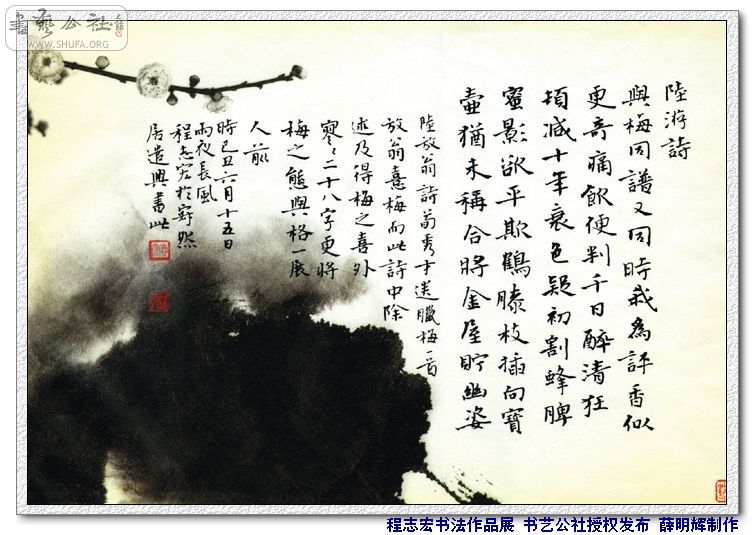 書藝公社
WWW.SHUFA.ORG
陸游詩
與梅同譜又同時我為評香似
更奇痛飲便判千日醉清狂
頓減十年衰色疑初割蜂脾
蜜影欲平欺鶴膝枝插向寶
壺猶未稱合將金屋貯幽姿
陸放翁詩荀秀才送臘梅一首
放翁憙梅而此詩中除
述及得梅之喜外
寥〻二十八字更將
梅之態與格一展
人前
時己丑六月十五日
雨夜長風
程志宏於寂然
居遣興書此
程志宏书法作品展 书艺公社授权发布 薛明辉制作